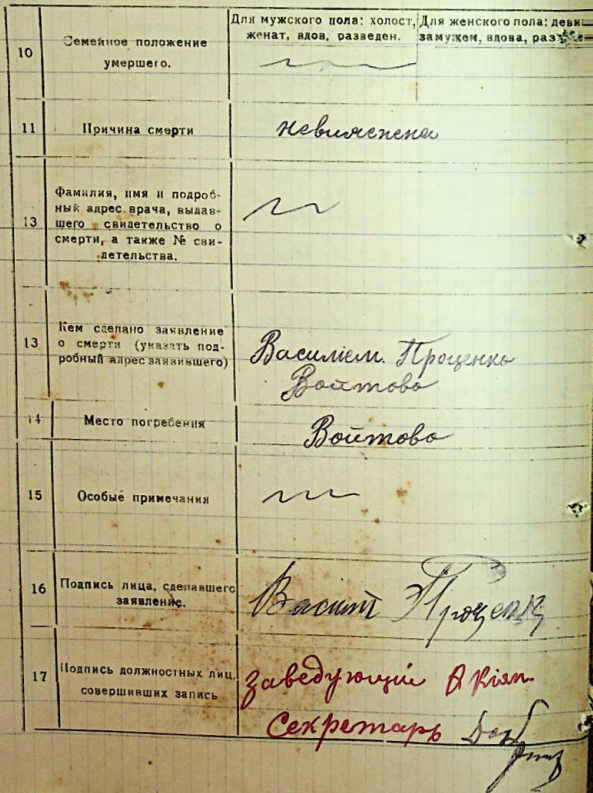 10
Семейное положение
умершего.
Для мужского пола: холост,
женат, вдов, разведен.
Для женского пола: деви
замужем, вдова, раз
11
Причина смерти
невияснена
13
Фамилия, имя и подроб-
ный адрес врача, выдав-
шего свидетельство о
смерти, а также № сви-
детельства.
13
Кем сделано заявление
о смерти (указать под-
робный адрес заявившего)
Василием Проценко
Войтово
14
Место погребения
Войтово
15
Особые примечания
16
Подпись лица, сделавшего
заявление.
Проценко
17
Подпись должностных лиц,
совершивших запись
Заведующий
Секретарь